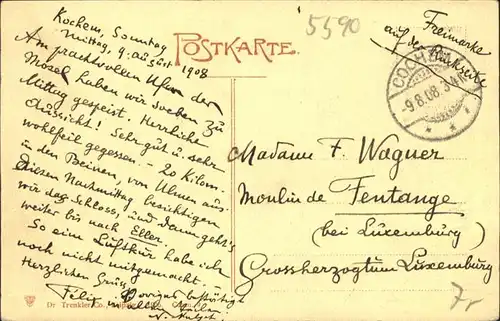 Kochem, Sonntag
Mittag, 9. august 1908
Am prachtvollen Ufer der
Mosel haben wir soeben zu
Mittag gespeist. Herrliche
Aussicht! Sehr gut u. sehr
wohlfeil gegessen. – 20 Kilom.
in den Beinen, von Ulmen aus.
Diesen Nachmittag besichtigen
wir das Schloss, und dann geht's
weiter bis nach Eller.
So eine Luftkur habe ich
noch nicht mitgemacht. –
Herzlichen Gruss
Felix
Obiges bestätigt
5590
POSTKARTE.
Freimarke
auf der Rückseite
COCHEM
9.8.08. 3-4N
Madame F. Wagner
Moulin de Fentange
(bei Luxemburg)
Grossherzogtum Luxemburg
7,-
Dr Trenkler Co., Leipzig